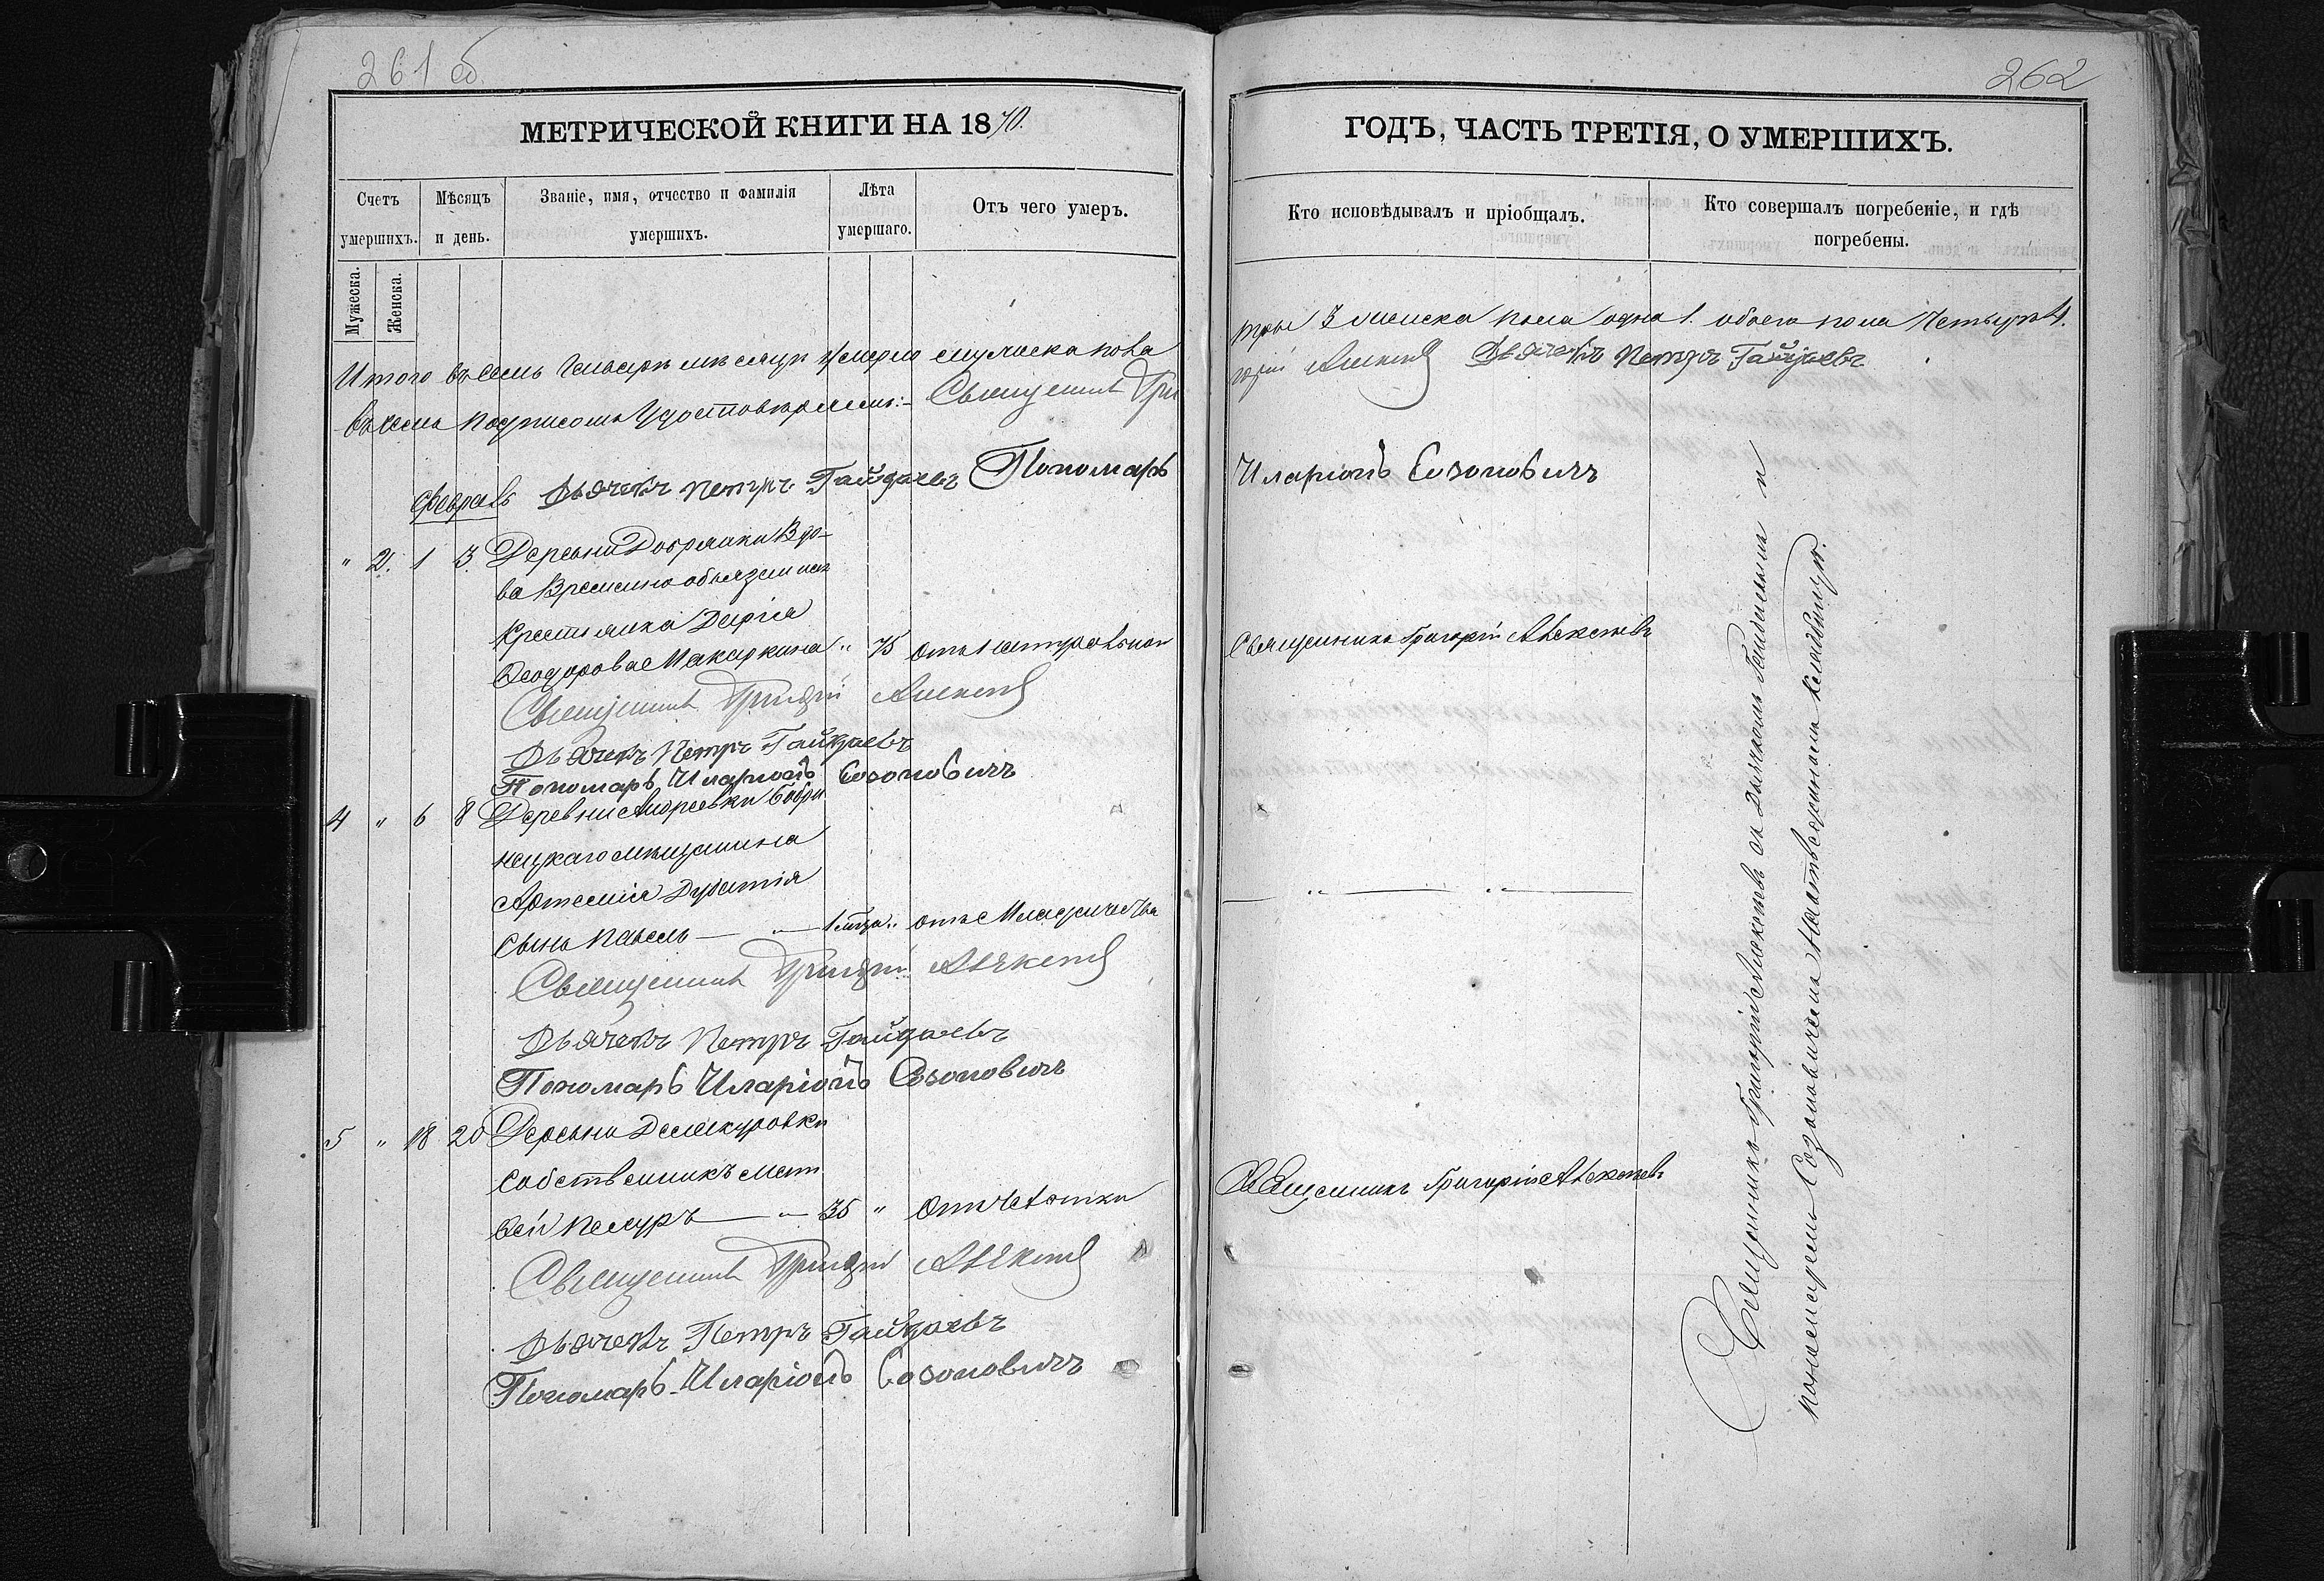 261 об.
МЕТРИЧЕСКОЙ КНИГИ НА 1870.
Счетъ умершихъ.
Мужеска.
Женска.
Мѣсяцъ и день.
Званіе, имя, отчество и фамилія умершихъ.
Лѣта умершаго.
Отъ чего умеръ.
Итого въ семъ Генварѣ мѣсяцѣ умерло мужеска пола
въ семъ подписомъ удостовѣряемъ:- Священникъ Гри
Дьячекъ Петръ Гайдаевъ Пономарь
Февраль
" 2. 1 3. Деревни Добрянки Вдо-
ва Временно обязанная
Крестьянка Дарія
Ѳеодорова Макаркина " 75 отъ натуральной
Священникъ Григорій Алексѣевъ
Дьячекъ Петръ Гайдаевъ
Пономарь Иларіонъ Созоновичъ
4 " 6 8 Деревни Андреевки Бобри
нецкаго мѣщанина
Артемія
Сынъ Павелъ — " — 1 мѣся. " отъ Младенчества
Священникъ Григорій Алексѣевъ
Дьячекъ Петръ Гайдаевъ
Пономарь Иларіонъ Созоновичъ
5 " 18 20 Деревни
Собственникъ Мат
вей — " — 35 " отъ Чахотки
Священникъ Григорій Алексѣевъ
Дьячекъ Петръ Гайдаевъ
Пономарь Иларіонъ Созоновичъ
262
ГОДЪ, ЧАСТЬ ТРЕТІЯ, О УМЕРШИХЪ.
Кто исповѣдывалъ и пріобщалъ.
Кто совершалъ погребеніе, и гдѣ
погребены.
три 3 женска пола одна 1. обоего пола Четыре 4.
горій Алексѣевъ Дьячекъ Петръ Гайдаевъ
Иларіонъ Созоновичъ
Священникъ Григорій Алексѣевъ
— " — " —
Священникъ Григорій Алексѣевъ
Священникъ Григорій Алексѣевъ съ Дьячкомъ Гайдаевымъ и
пономаремъ Созоновичемъ на кладбищѣ.